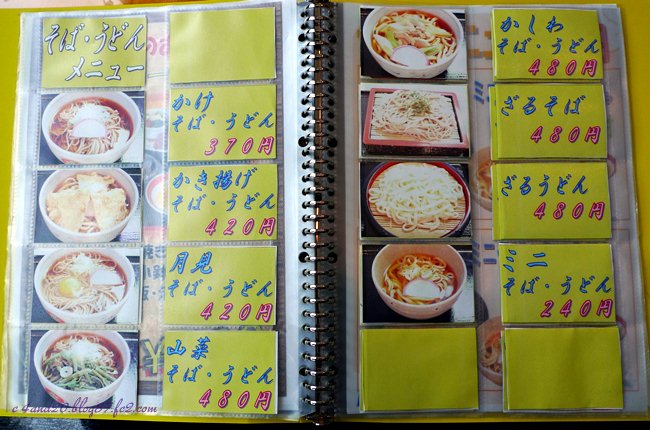 そば・うどん
メニュー
かけ
そば・うどん
370円
かき揚げ
そば・うどん
420円
月見
そば・うどん
420円
山菜
そば・うどん
480円
かしわ
そば・うどん
480円
ざるそば
480円
ざるうどん
480円
ミニ
そば・うどん
240円